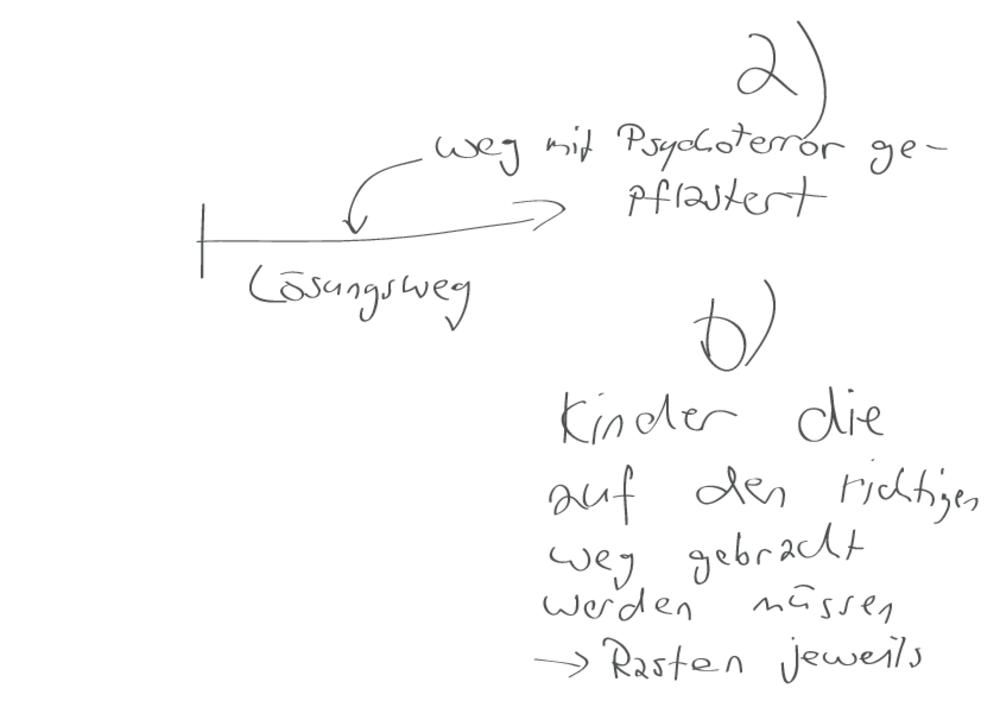 a)
weg mit Psychoterror ge-
pflastert
Lösungsweg
b)
Kinder die
auf den richtigen
weg gebracht
werden müssen
→ Rasten jeweils